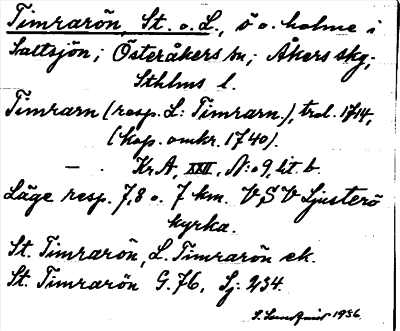 Timrarön, St. o. L., ö o. holme i
Saltsjön; Österåkers sn; Åkers skg;
Sthlms l.
Timrarn (resp. L: Timrarn.), trol. 1714,
(kop. omkr. 1740).
— . Kr.A, XXII, N:o 9, lit. b.
Läge resp. 7,8 o. 7 km. VSV Ljusterö
kyrka.
St. Timrarön, L. Timrarön ek.
St. Timrarön G. 76, Sj: 234.
1936